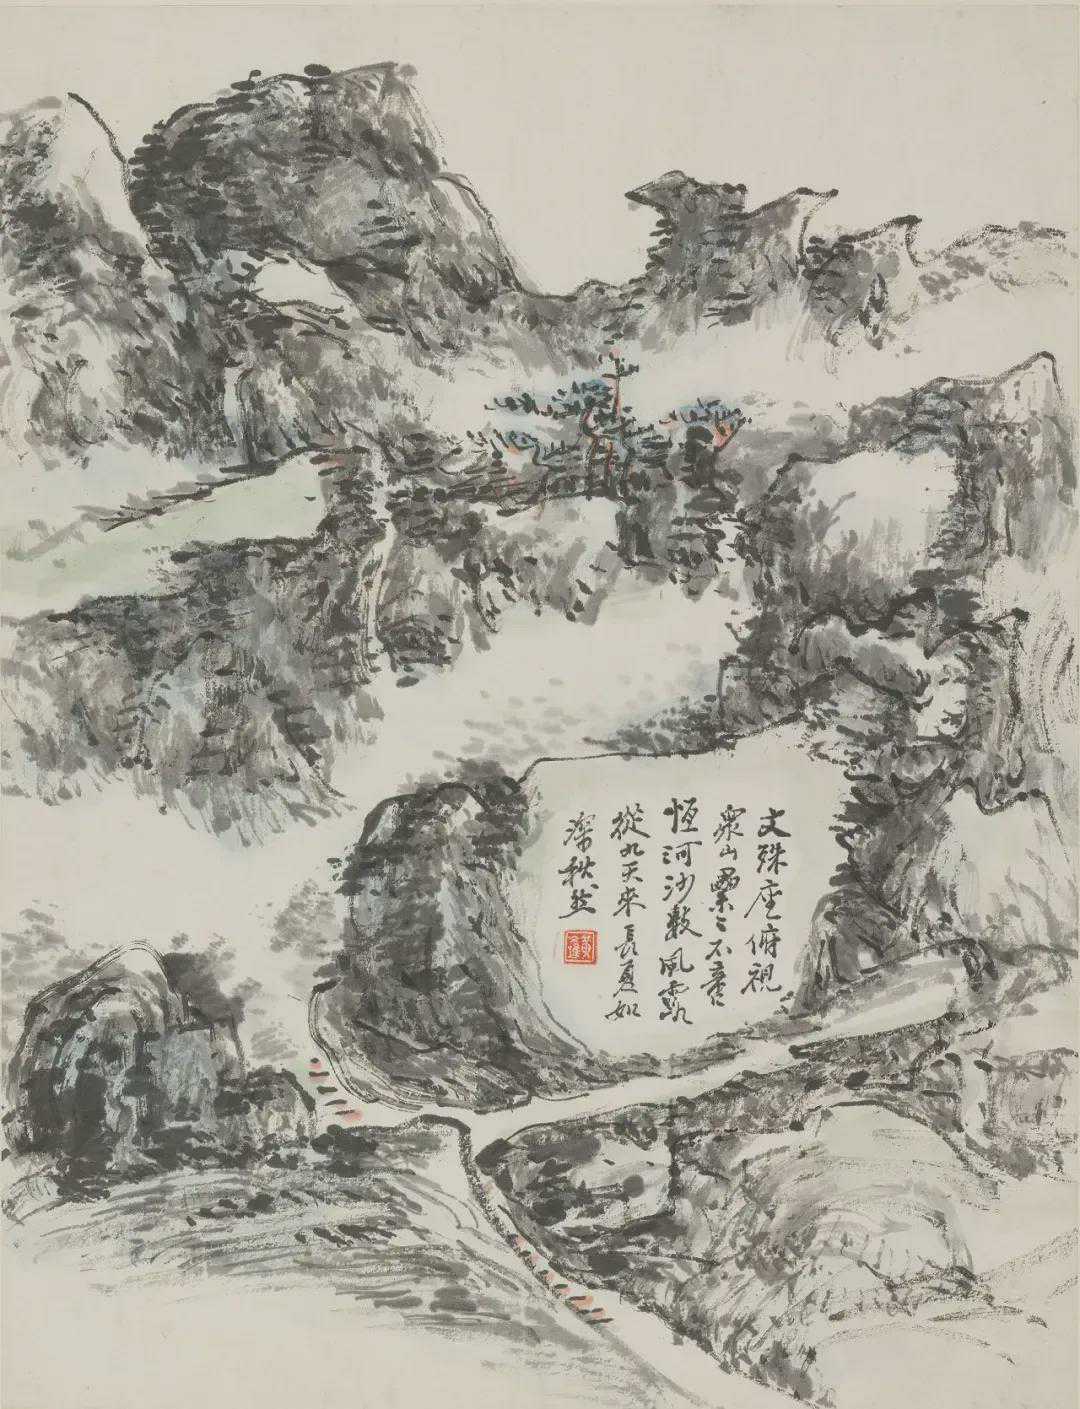 文殊座俯視
眾山纍〻不啻
恆河沙數風
從九天來長夏如
深秋然